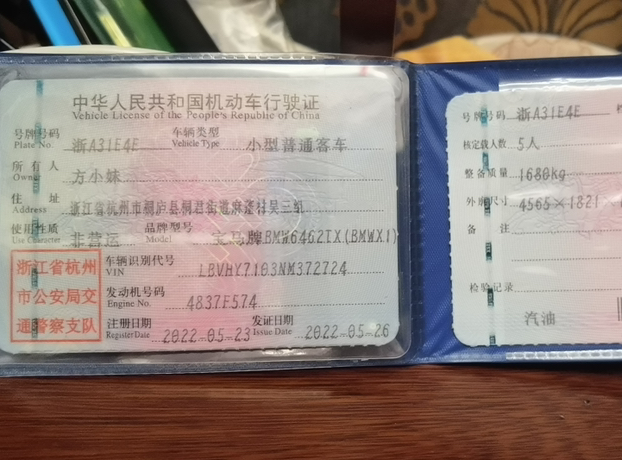 中华人民共和国机动车行驶证
Vehicle License of the People's Republic of China
号牌号码 浙A31E4E 车辆类型 小型普通客车
Plate No. Vehicle Type
所有人 方小妹
Owner
住址 浙江省杭州市桐庐县桐君街道麻蓬村吴三组
Address
使用性质 非营运 品牌型号 宝马牌BMW6462TX(BMWX1)
Use Character Model
浙江省杭州
市公安局交
通警察支队
车辆识别代号 LBVHY7103NM372724
VIN
发动机号码 4837F574
Engine No.
注册日期 2022-05-23 发证日期 2022-05-26
Register Date Issue Date
号牌号码 浙A31E4E
核定载人数 5人
整备质量 1680kg
外廓尺寸 4565×1821
备注
检验记录
汽油